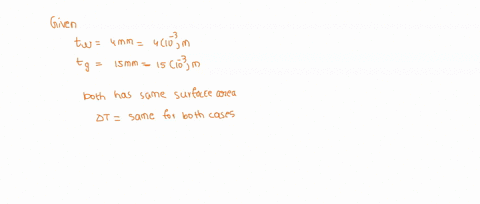 Given
tw = 4mm = 4(10⁻³)m
tg = 15mm = 15(10⁻³)m
both has same surface area
ΔT = same for both cases